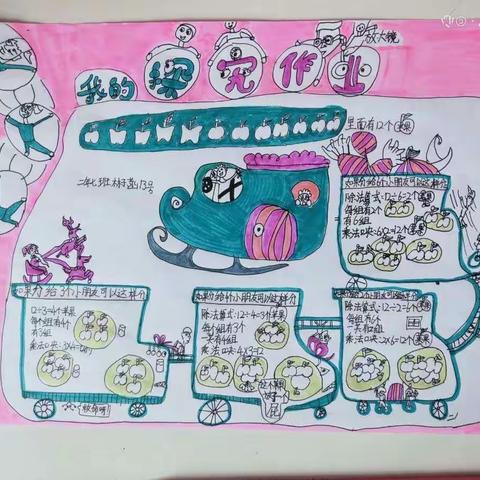 放大镜
我的探究作业
里面有12个苹果
二年七班 13号
如果分给6个小朋友可以这样分
除法算式:12÷6=2个
每组有2个
有6组
乘法口决:6×2=12个
如果分给3个小朋友可以这样分
12÷3=4个苹果
每个组有4个
有3组
乘法口决:3×4=12
如果分给4个小朋友可以这样分
除法算式:12÷4=3个苹果
每个组有3个
一共有4组
乘法口决:4×3=12
如果分给2个小朋友可以这样分
除法算式:12÷2=6个
每组有6个
一共有2组
乘法口决:2×6=12个
救命呀!